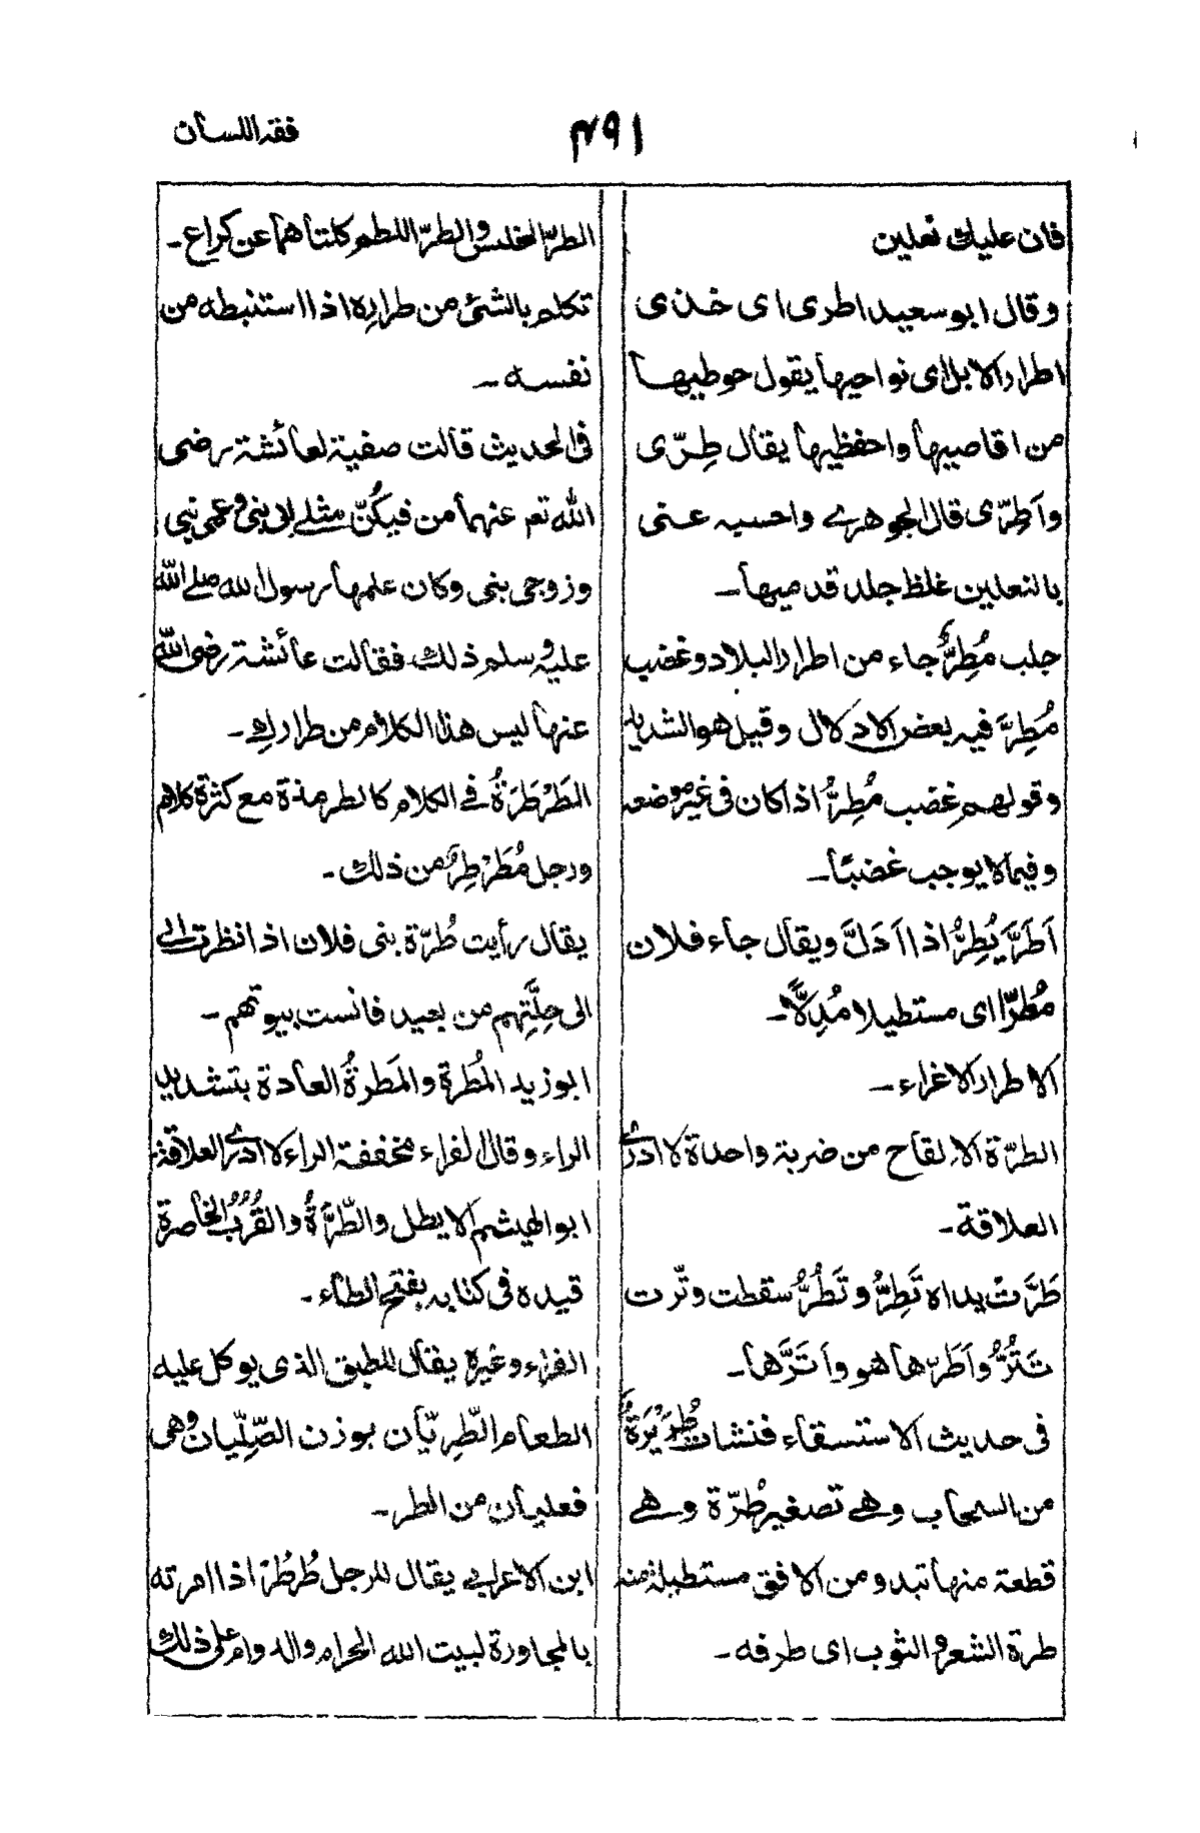 فقه اللسان
١٩٣
فان عليك نعلين
وقال ابو سعيد اطرى اى خذى
اطرار الابل اى نواحيها يقول حوطيها
من اقاصيها واحفظيها يقال طِرّى
واَطِرّى قال الجوهرے واحسبه عنى
بالنعلين غلظ جلد قدميها ـ
جلب مُطِرٌّ جاء من اطرار البلاد وغضب
مُطِرَّ فيه بعض الادلال وقيل هو الشديد
وقولهم غضب مُطِرٌّ اذا كان فى غير موضعه
وفيما لا يوجب غضبًا ـ
اَطَرَّ يُطِرُّ اذا اَدَلَّ ويقال جاء فلان
مُطرّا اى مستطيلا مُدِلًّا ـ
الاطرار الاغراء ـ
الطرّة الالقاح من ضربة واحدة لا ادرى
العلاقة ـ
طَرَّتْ يداه تَطِرُّ وتَطُرُّ سقطت وترّت
تَتُرُّ واَطَرّها هو واَتَرَّها ـ
فى حديث الاستسقاء فنشات طُرَيْرَةٌ
من السحاب وهے تصغير طُرّة وهے
قطعة منها تبدو من الافق مستطيلة منه
طرة الشعر و الثوب اى طرفه ـ
الطرّ الخلس والطرّ اللطم كلتاهما عن كراع ـ
تكلم بالشئ من طراره اذا استنبطه من
نفسه ـ
فى الحديث قالت صفية لعائشة رضى
الله تع عنهما من فيكُنّ مثلے ابى نبى وعمى نبى
وزوجى نبى وكان علمها رسول الله صلے الله
عليه وسلم ذلك فقالت عائشة رضى الله
عنها ليس هذا الكلام من طرارك ـ
الطَرْطَرَةُ فے الكلام كالطرمذة مع كثرة كلام
ورجل مُطَرْطِرٌ من ذلك ـ
يقال رأيت طُرّة بنى فلان اذا نظرت الے
الى حِلَّتِهم من بعيد فانست بيوتهم ـ
ابو زيد المُطرة والمَطرةُ العادة بتشديد
الراء وقال الفراء مخففة الراء لا ادرى العلاقة
ابو الهيثم الايطل والطَّرَّةُ والقُرُبُ الخاصرة
قيده فى كتابه بفتح الطاء ـ
الفراء وغيره يقال للطبق الذى يوكل عليه
الطعام الطِّرِيّان بوزن الصِّلِّيان وهى
فعليان من الطر ـ
ابن الاعرابے يقال للرجل طُرطُرْ اذا امرته
بالمجاورة لبيت الله الحرام والدوام على ذلك